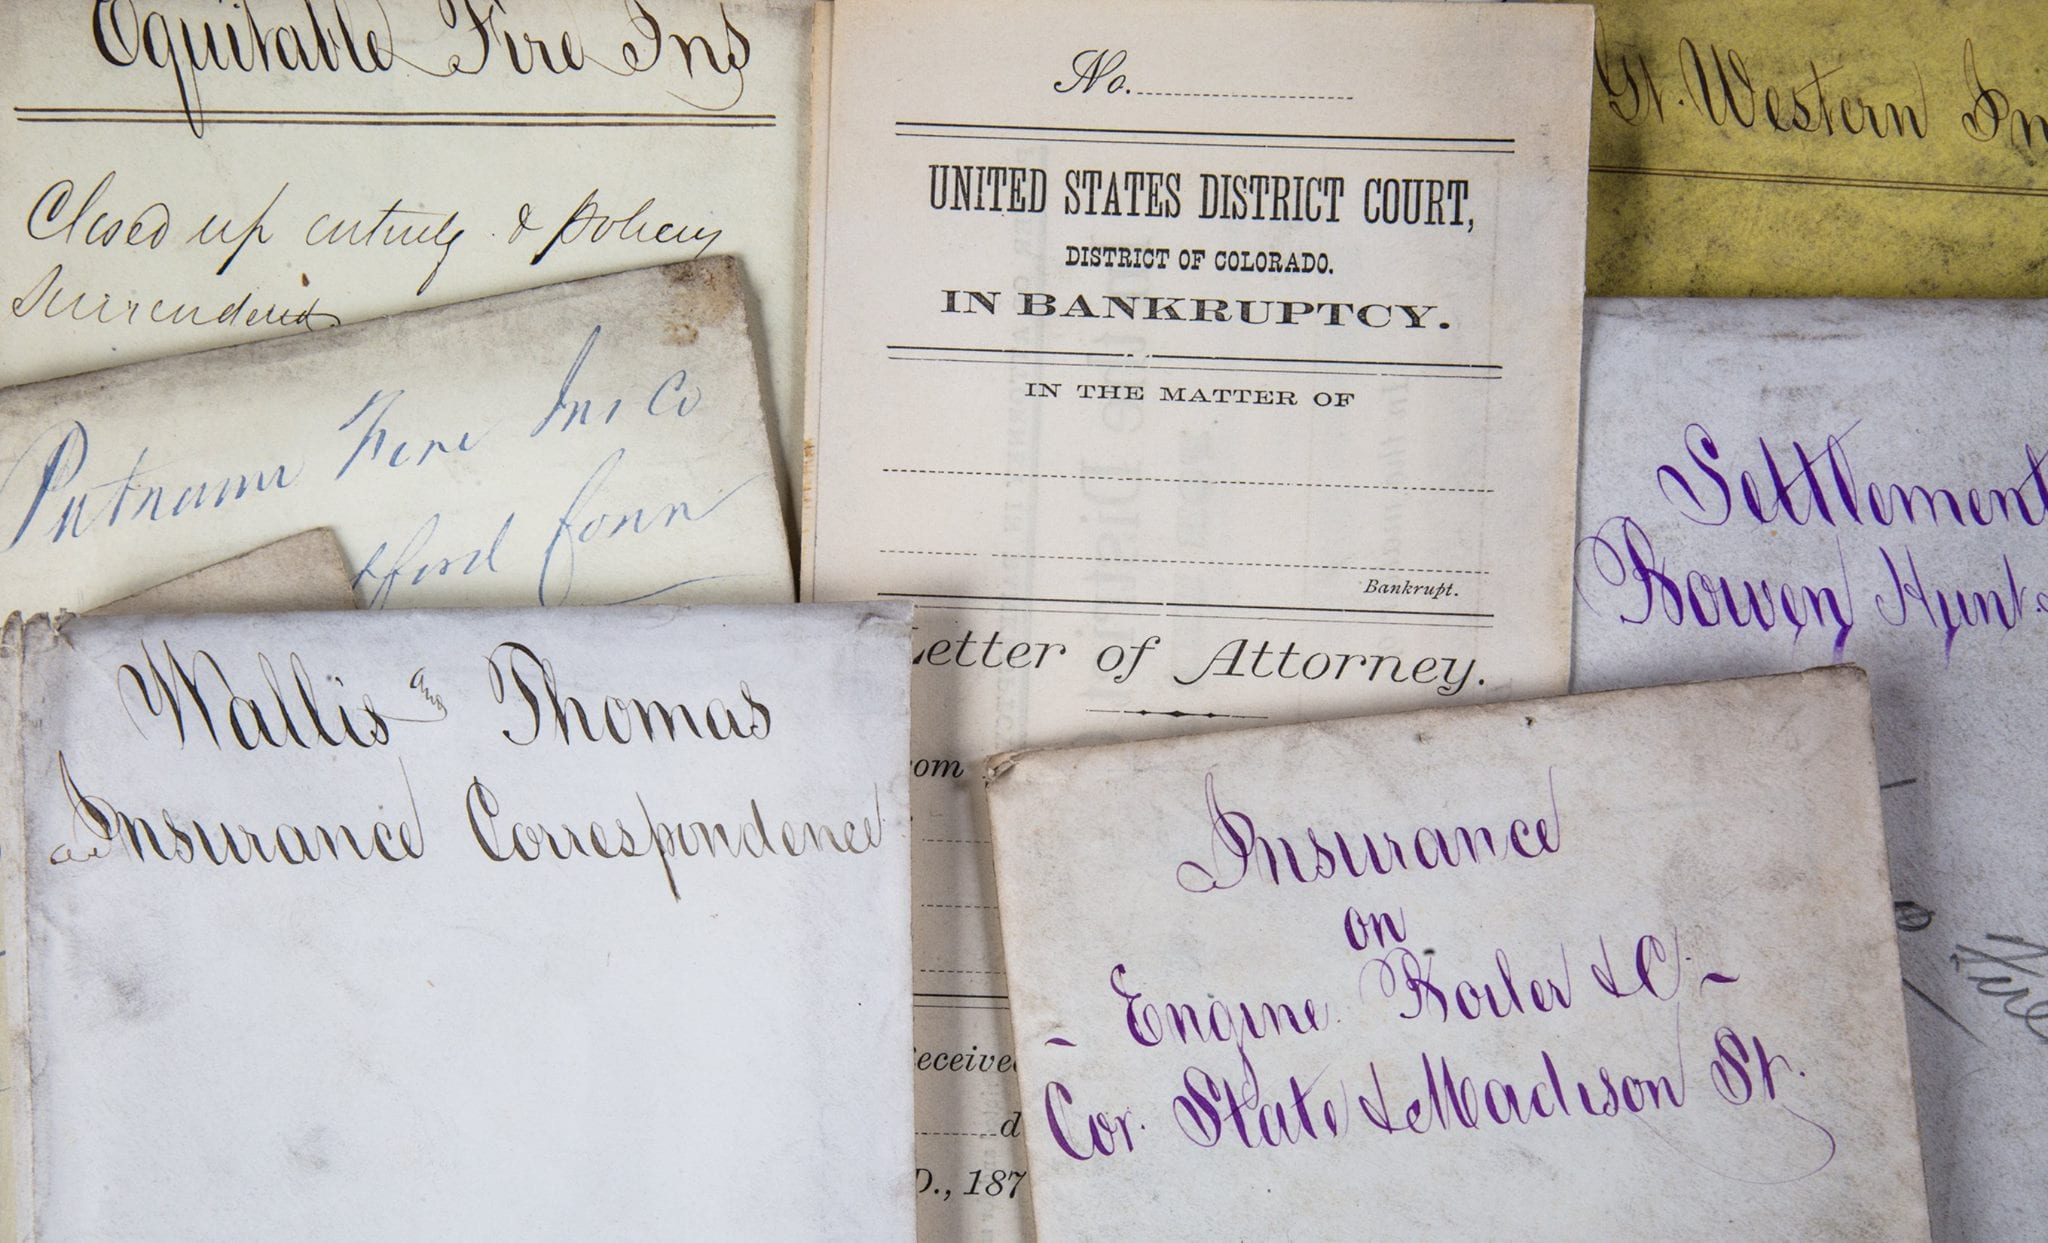 Equitable Fire Ins
Closed up entirely & policy
surrendered
Putnam Fire Ins Co
tford Conn
Wallis and Thomas
Insurance Correspondence
No.
UNITED STATES DISTRICT COURT,
DISTRICT OF COLORADO.
IN BANKRUPTCY.
IN THE MATTER OF
Bankrupt.
Letter of Attorney.
om
eceived
d
D., 187
Gt. Western In
Settlement
Bowen Hunt &
Fire
Insurance
on
- Engine Boiler & C -
Cor. State & Madison St.